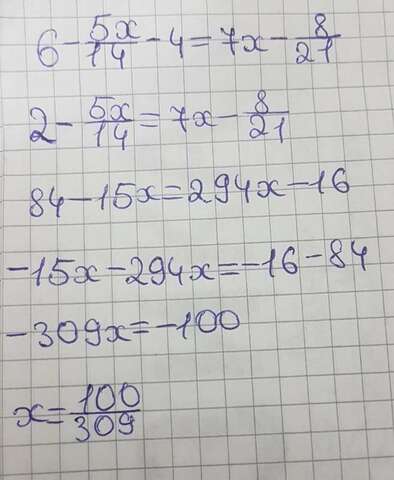 6 - 5x/14 - 4 = 7x - 8/21
2 - 5x/14 = 7x - 8/21
84 - 15x = 294x - 16
-15x - 294x = -16 - 84
-309x = -100
x = 100/309